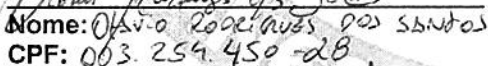 Nome: OTÁVIO RODRIGUES DOS SANTOS
CPF: 003.254.450-28